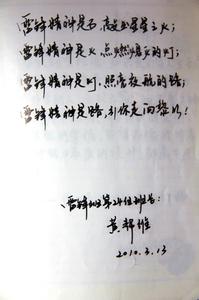 雷锋精神是石,敲出星星之火;
雷锋精神是火,点燃熄灭的灯;
雷锋精神是灯,照亮夜航的路;
雷锋精神是路,引你走向黎明!
雷锋班第24任班长:
黄辉维
2010.3.13